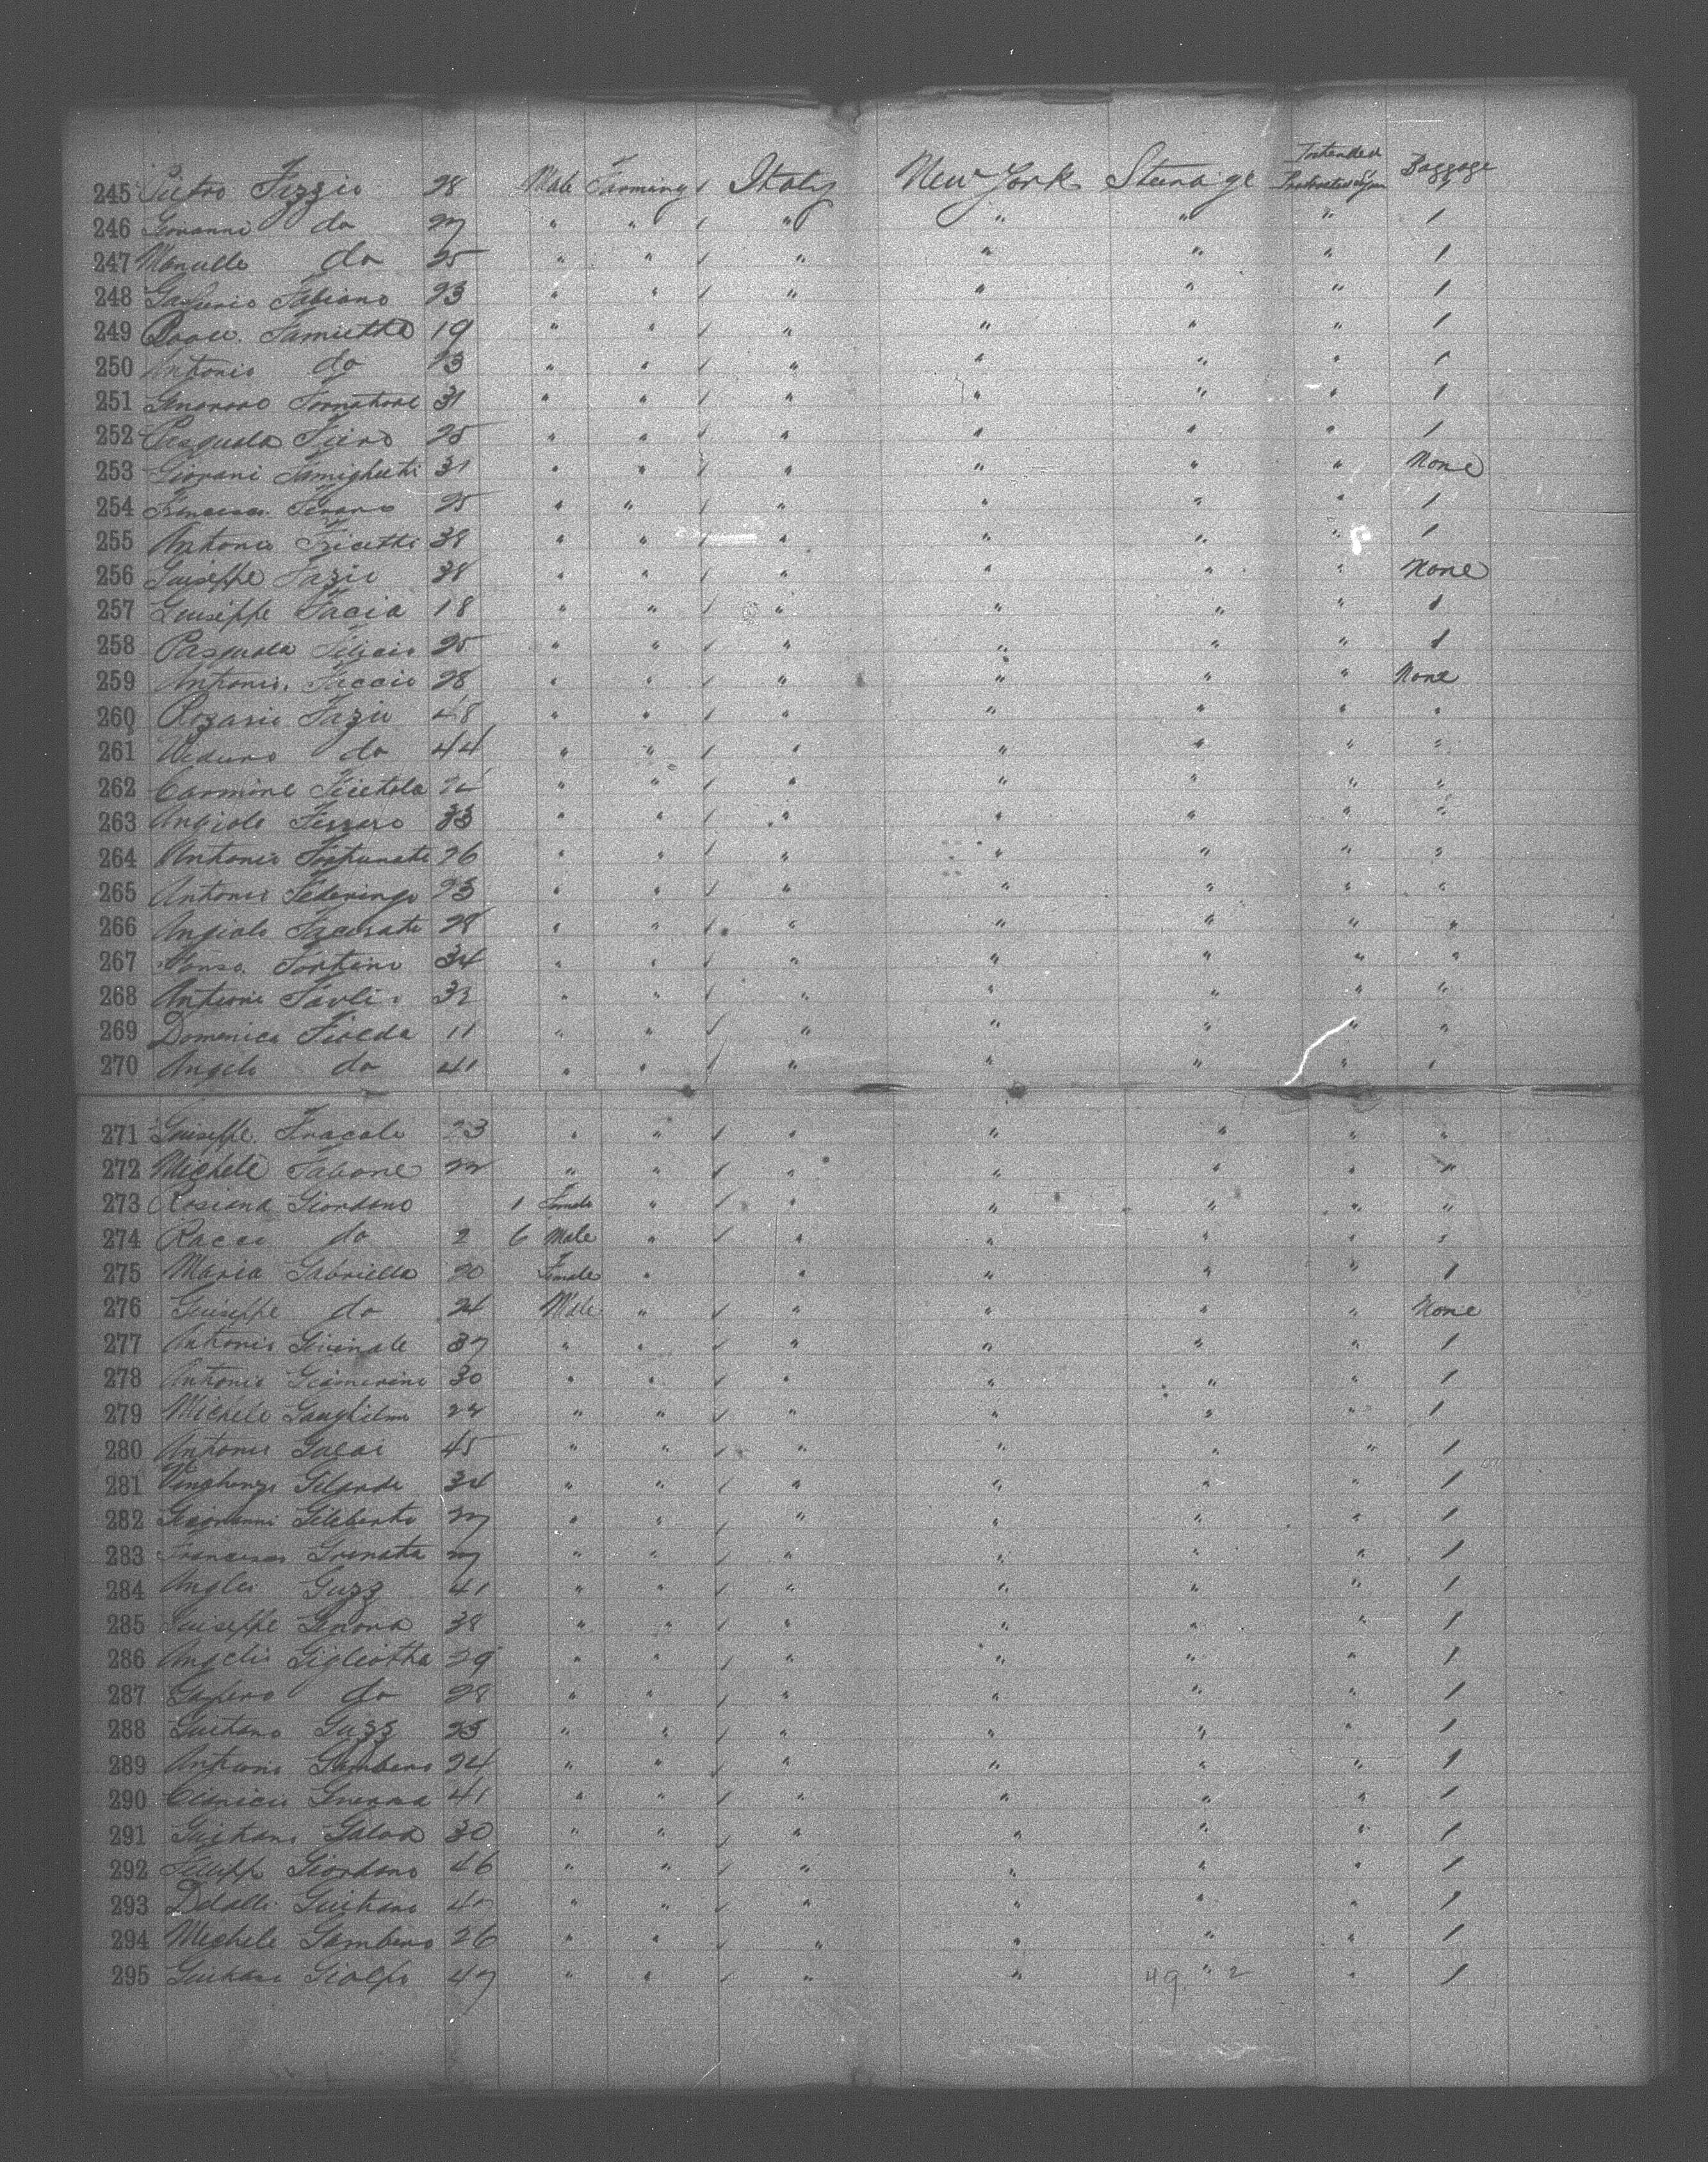 245 Pietro Fazzio 28 Male Farming ✓ Italy New York Steerage Intended Protracted Sojourn Baggage
246 Giovanni do 27 " " ✓ " " " " 1
247 Manuelle do 25 " " ✓ " " " " 1
248 Fabiano 23 " " ✓ " " " " 1
249 Famietta 19 " " ✓ " " " " 1
250 Antonio do 23 " " ✓ " " " " 1
251 Genaroro Fornatore 31 " " ✓ " " " " 1
252 Pasquala Fiero 25 " " ✓ " " " " 1
253 Giovani Famighetti 31 " " ✓ " " " " None
254 Francesca 25 " " ✓ " " " " 1
255 Antonio Fricetti 38 " " ✓ " " " " 1
256 Guiseppe Fazio 38 " " ✓ " " " " None
257 Guiseppe Facia 18 " " ✓ " " " " 1
258 Pasquala Felicio 25 " " ✓ " " " " 1
259 Antonio. Faccio 28 " " ✓ " " " " None
260 Rozario Fazio 48 " " ✓ " " " " "
261 do 44 " " ✓ " " " " "
262 Carmine " " ✓ " " " " "
263 Angiolo Ferraro 33 " " ✓ " " " " "
264 Antonio Fortunato 26 " " ✓ " " " " "
265 Antonio Federingo 23 " " ✓ " " " " "
266 Angiolo 28 " " ✓ " " " " "
267 Fortino 34 " " ✓ " " " " "
268 Antonio 32 " " ✓ " " " " "
269 Domenica Fiolda 11 " " ✓ " " " " "
270 Angelo do 41 " " ✓ " " " " "
271 Guiseppe Fragale 23 " " ✓ " " " " "
272 Michele Fabone " " ✓ " " " " "
273 Rosiana Giordano 1 Female " ✓ " " " " "
274 Racci do 2 6 Male " ✓ " " " " "
275 Maria Gabriella 20 Female " " " " " 1
276 Guiseppe do 24 Male " ✓ " " " " None
277 Antonio Givinale 37 " " ✓ " " " " 1
278 Antonio Giamerine 30 " " ✓ " " " " 1
279 Michele Gauglilmo 24 " " ✓ " " " " 1
280 Antonio 45 " " ✓ " " " " 1
281 Vinghenzo Gilardi 34 " " ✓ " " " " 1
282 Giovanni Gileberto 27 " " ✓ " " " " 1
283 Francesco Grenata 27 " " ✓ " " " " 1
284 Anglio Guzz 41 " " ✓ " " " " 1
285 Guiseppe Genova 38 " " ✓ " " " " 1
286 Angelo Gigliotta 29 " " ✓ " " " " 1
287 do 28 " " ✓ " " " " 1
288 Guitano Guzz 25 " " ✓ " " " " 1
289 Antonio Gambeno 24 " " ✓ " " " " 1
290 Guerra 41 " " ✓ " " " " 1
291 Guitano Galva 30 " " ✓ " " " " 1
292 Fillippo Giordano 46 " " ✓ " " " " 1
293 Guitano " " ✓ " " " " 1
294 Michele Gambeno 26 " " ✓ " " " " 1
295 Giolfo 47 " " ✓ " " 49 " 2 " 1